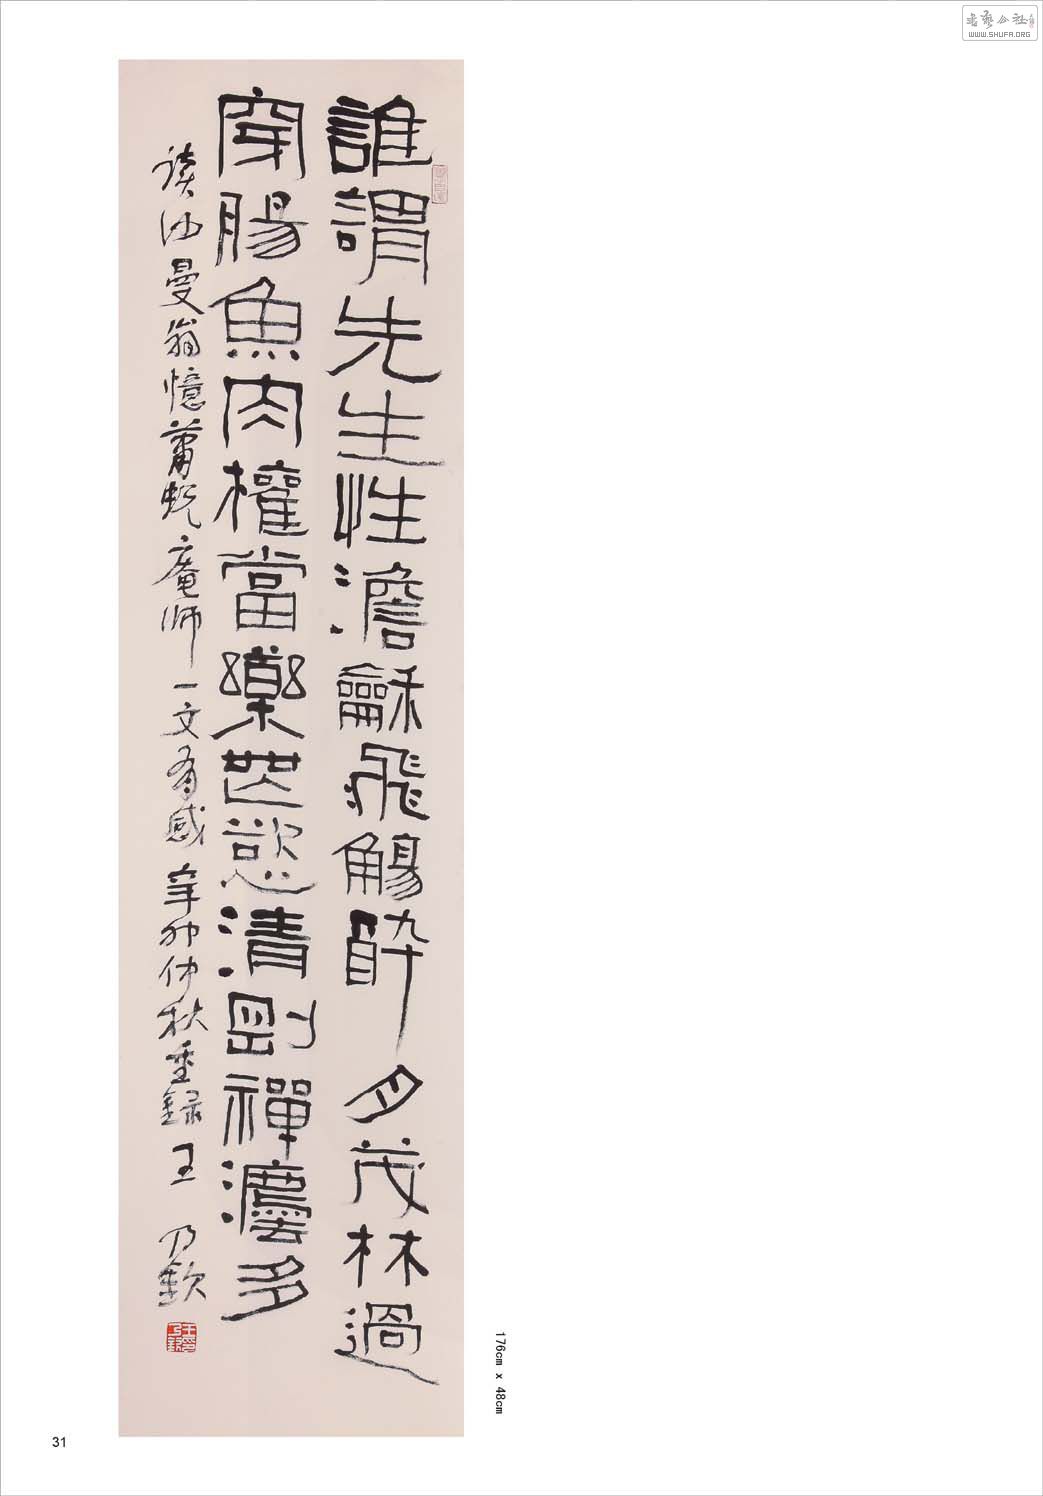 書藝公社
WWW.SHUFA.ORG
誰謂先生性澹龢飛觴醉月茂林過
穿腸魚肉權當樂無慾清剛禪灋多
读沙曼翁憶蕭蜕庵师一文有感辛卯仲秋重録王乃欽
176cm x 48cm
31